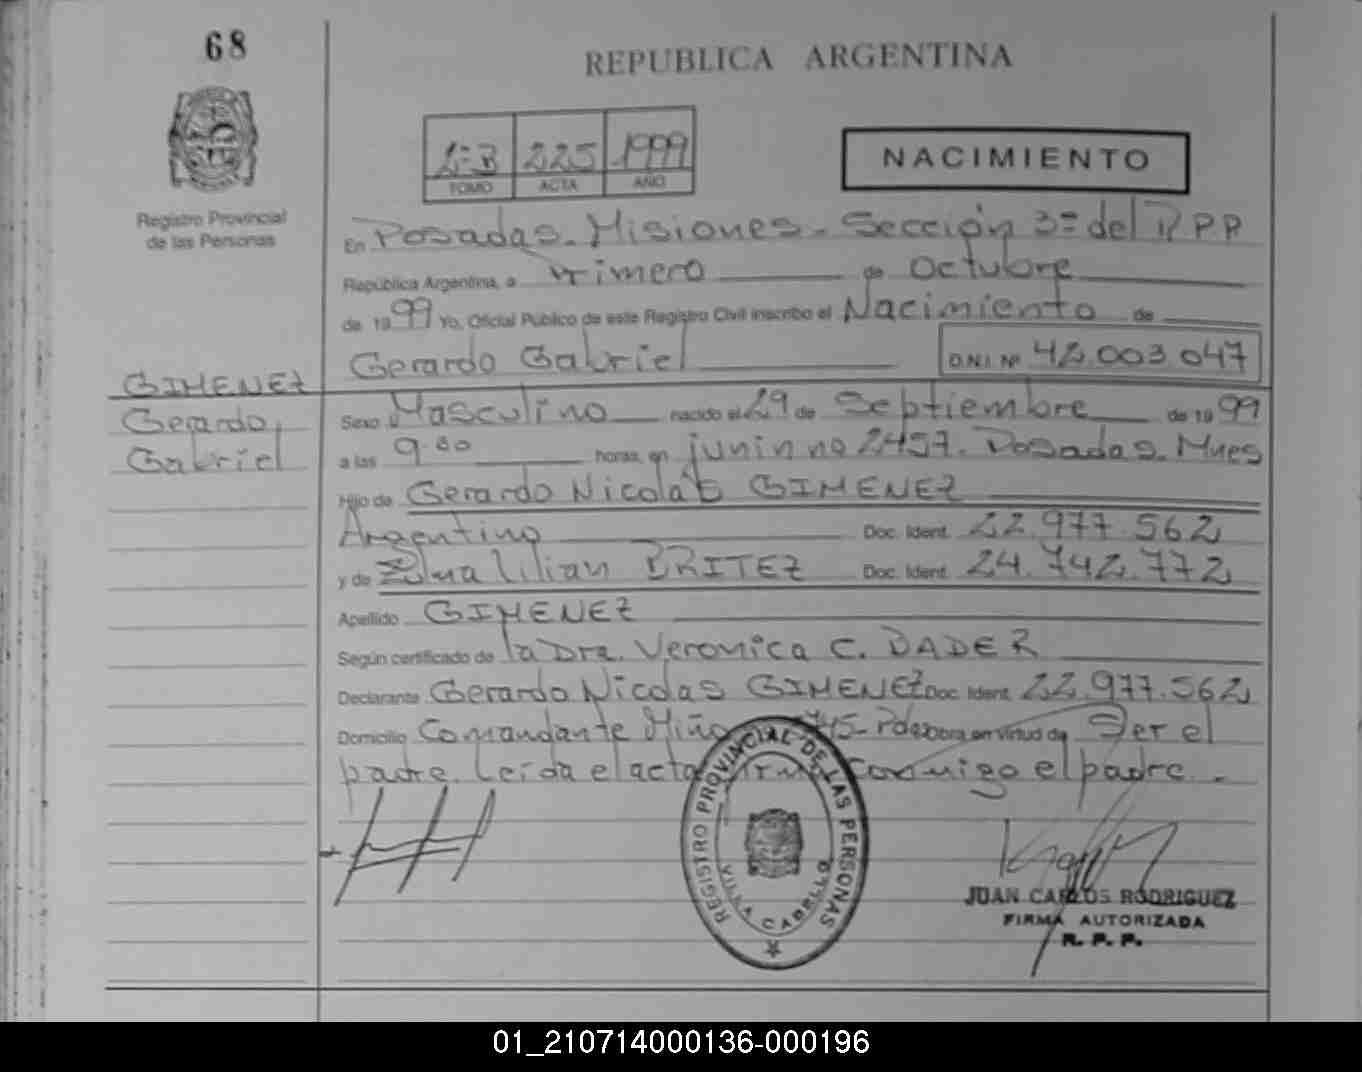 68
REPUBLICA ARGENTINA
225 1999
TOMO ACTA AÑO
NACIMIENTO
Registro Provincial
de las Personas
En Posadas. Misiones. Sección 3ª del R P P
República Argentina, a Primero de Octubre
de 1999 Yo, Oficial Público de este Registro Civil inscribo el Nacimiento de
Gerardo Gabriel D.N.I. Nº 42.003.047
GIMENEZ
Gerardo
Gabriel
Sexo Masculino nacido el 29 de Septiembre de 1999
a las 9.00 horas, en junin no 2457. Posadas. Mnes
Hijo de Gerardo Nicolás GIMENEZ
Argentino Doc. Ident. 22.977.562
y de Lilian BRITEZ Doc. Ident. 24.742.772
Apellido GIMENEZ
Según certificado de la Dra. Veronica C. BADER
Declarante Gerardo Nicolas GIMENEZ Doc. Ident. 22.977.562
Domicilio Comandante Miño 745- Pdas Obra en virtud de Ser el
padre. Leída el acta conmigo el padre.
REGISTRO PROVINCIAL DE LAS PERSONAS
VILLA CABELLO
JUAN CARLOS RODRIGUEZ
FIRMA AUTORIZADA
R. P. P.
01_210714000136-000196